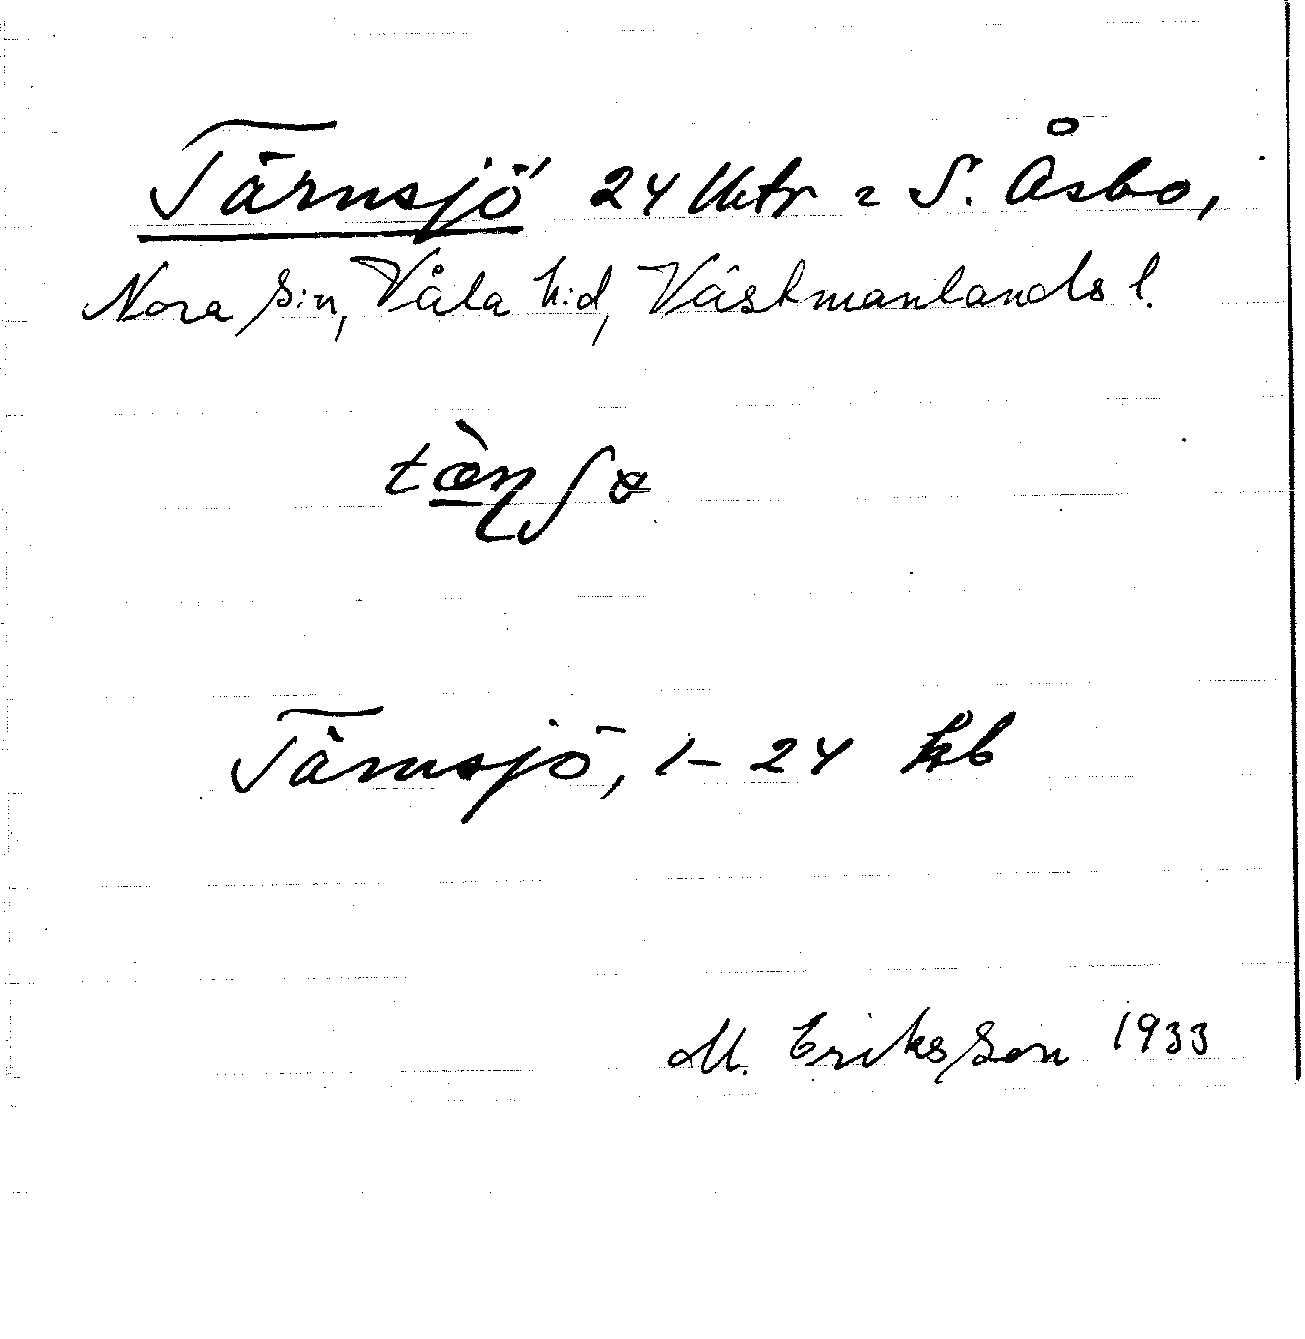 Tärnsjö 24 Uktr = S. Åsbo,
Nora s:n, Våla h:d, Västmanlands l.
Tärnsjö, 1–24 Kb
M. Eriksson 1933